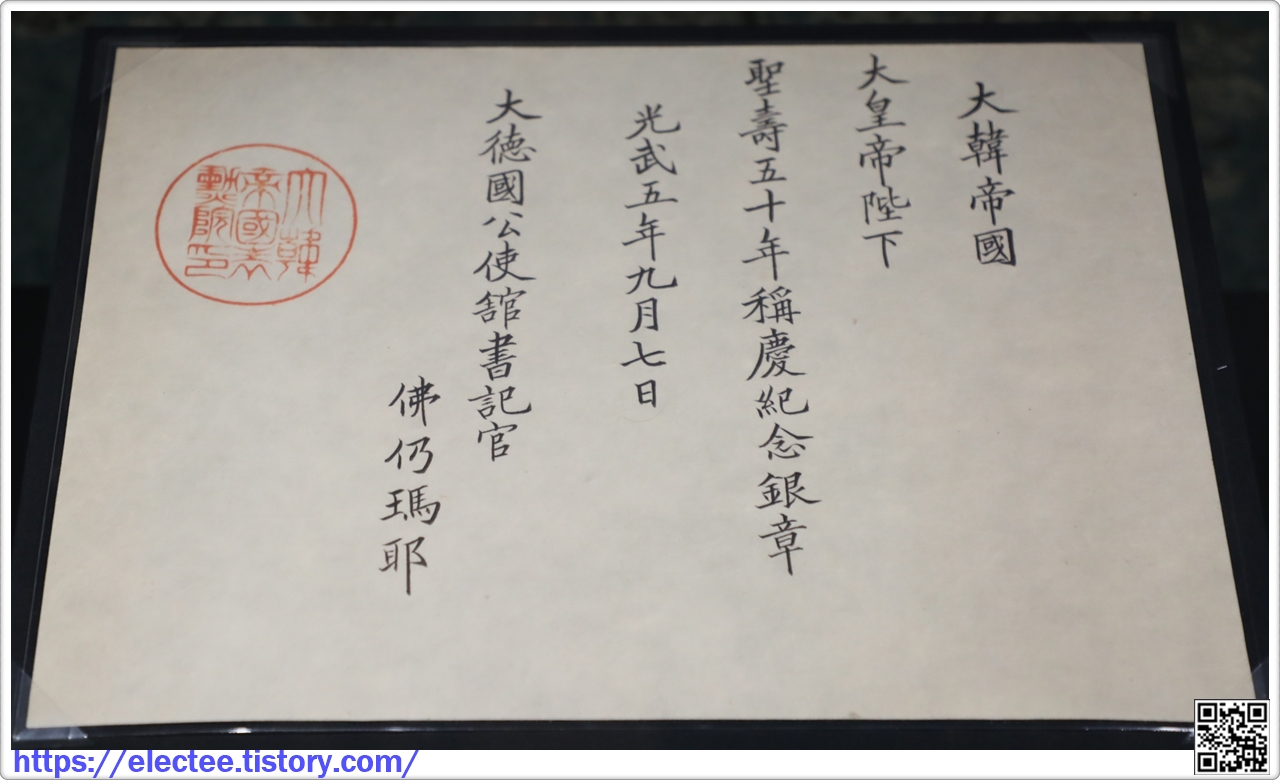 大韓帝國
大皇帝陛下
聖壽五十年稱慶紀念銀章
光武五年九月七日
大德國公使舘書記官
佛仍瑪耶
大韓
帝國表
勳院印
https://electee.tistory.com/